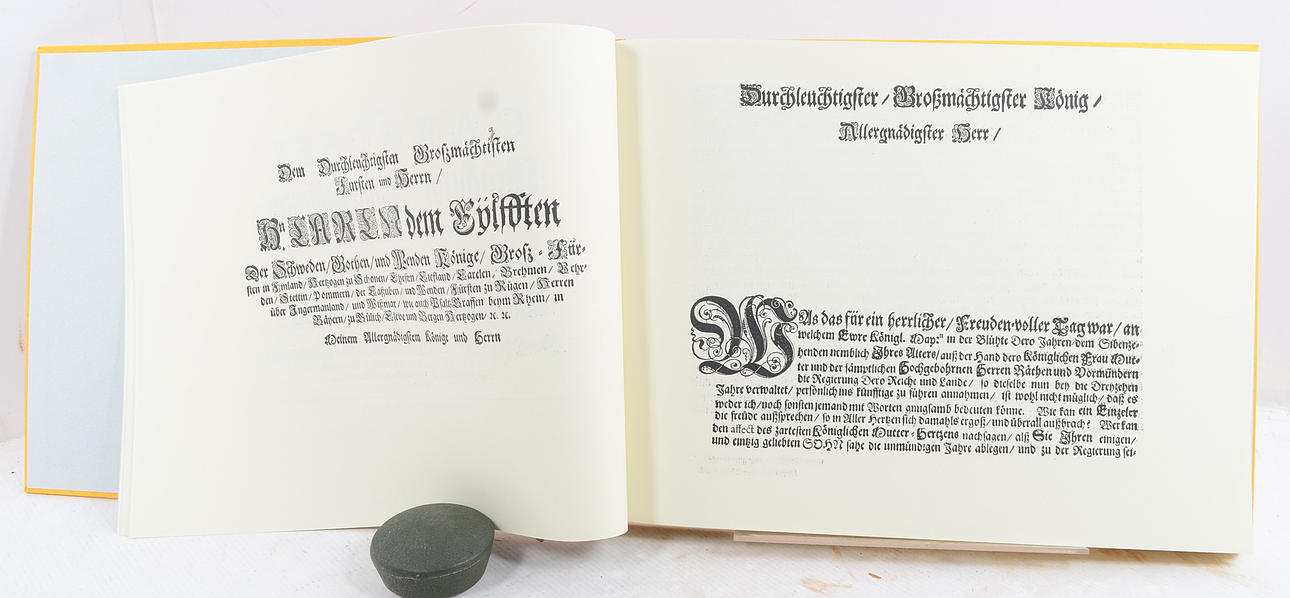 Dem Durchleuchtigsten Großmächtisten
Fursten und Herrn /
Hn. CARLN dem Eylfften
Der Schweden/Gothen/und Wenden Könige/ Groß-Für-
sten in Finland/ Hertzogen zu Schonen/ Ehesten/ Liefland/ Carelen/ Brehmen/ Vehr-
den/ Stettin/ Pommern/ der Caßuben/ und Wenden/ Fürsten zu Rügen/ Herren
über Ingermanland/ und Wißmar/ wie auch Pfaltz Graffen beym Rhein/ in
Bäyern/ zu Gülich/ Cleve und Bergen Hertzogen/ ꝛc. ꝛc.
Meinem Allergnädigsten Könige und Herrn
Durchleuchtigster / Großmächtigster König /
Allergnädigster Herr /
WAs das für ein herrlicher/ Freuden-voller Tag war/ an
welchem Ewre Königl. May:tt in der Blühte Dero Jahren/ dem Sibenze-
henden nemblich Ihres Alters/ auß der Hand dero Königlichen Frau Mut-
ter und der sämptlichen Hochgebohrnen Herren Räthen und Vormündern
die Regierung Dero Reiche und Lande/ so dieselbe nun bey die Dreyzehen
Jahre verwaltet/ persönlich ins künfftige zu führen annahmen/ ist wohl nicht müglich/ daß es
weder ich/ noch sonsten jemand mit Worten gnugsamb bedeuten könne. Wie kan ein Einzeler
die freüde außsprechen/ so in Aller Hertzen sich damahls ergoß/ und überall außbrach? Wer kan
den affect des zartesten Königlichen Mutter-Hertzens nachsagen/ alß Sie Ihren einigen/
und eintzig geliebten SOHN sahe die unmündigen Jahre ablegen/ und zu der Regierung sei-